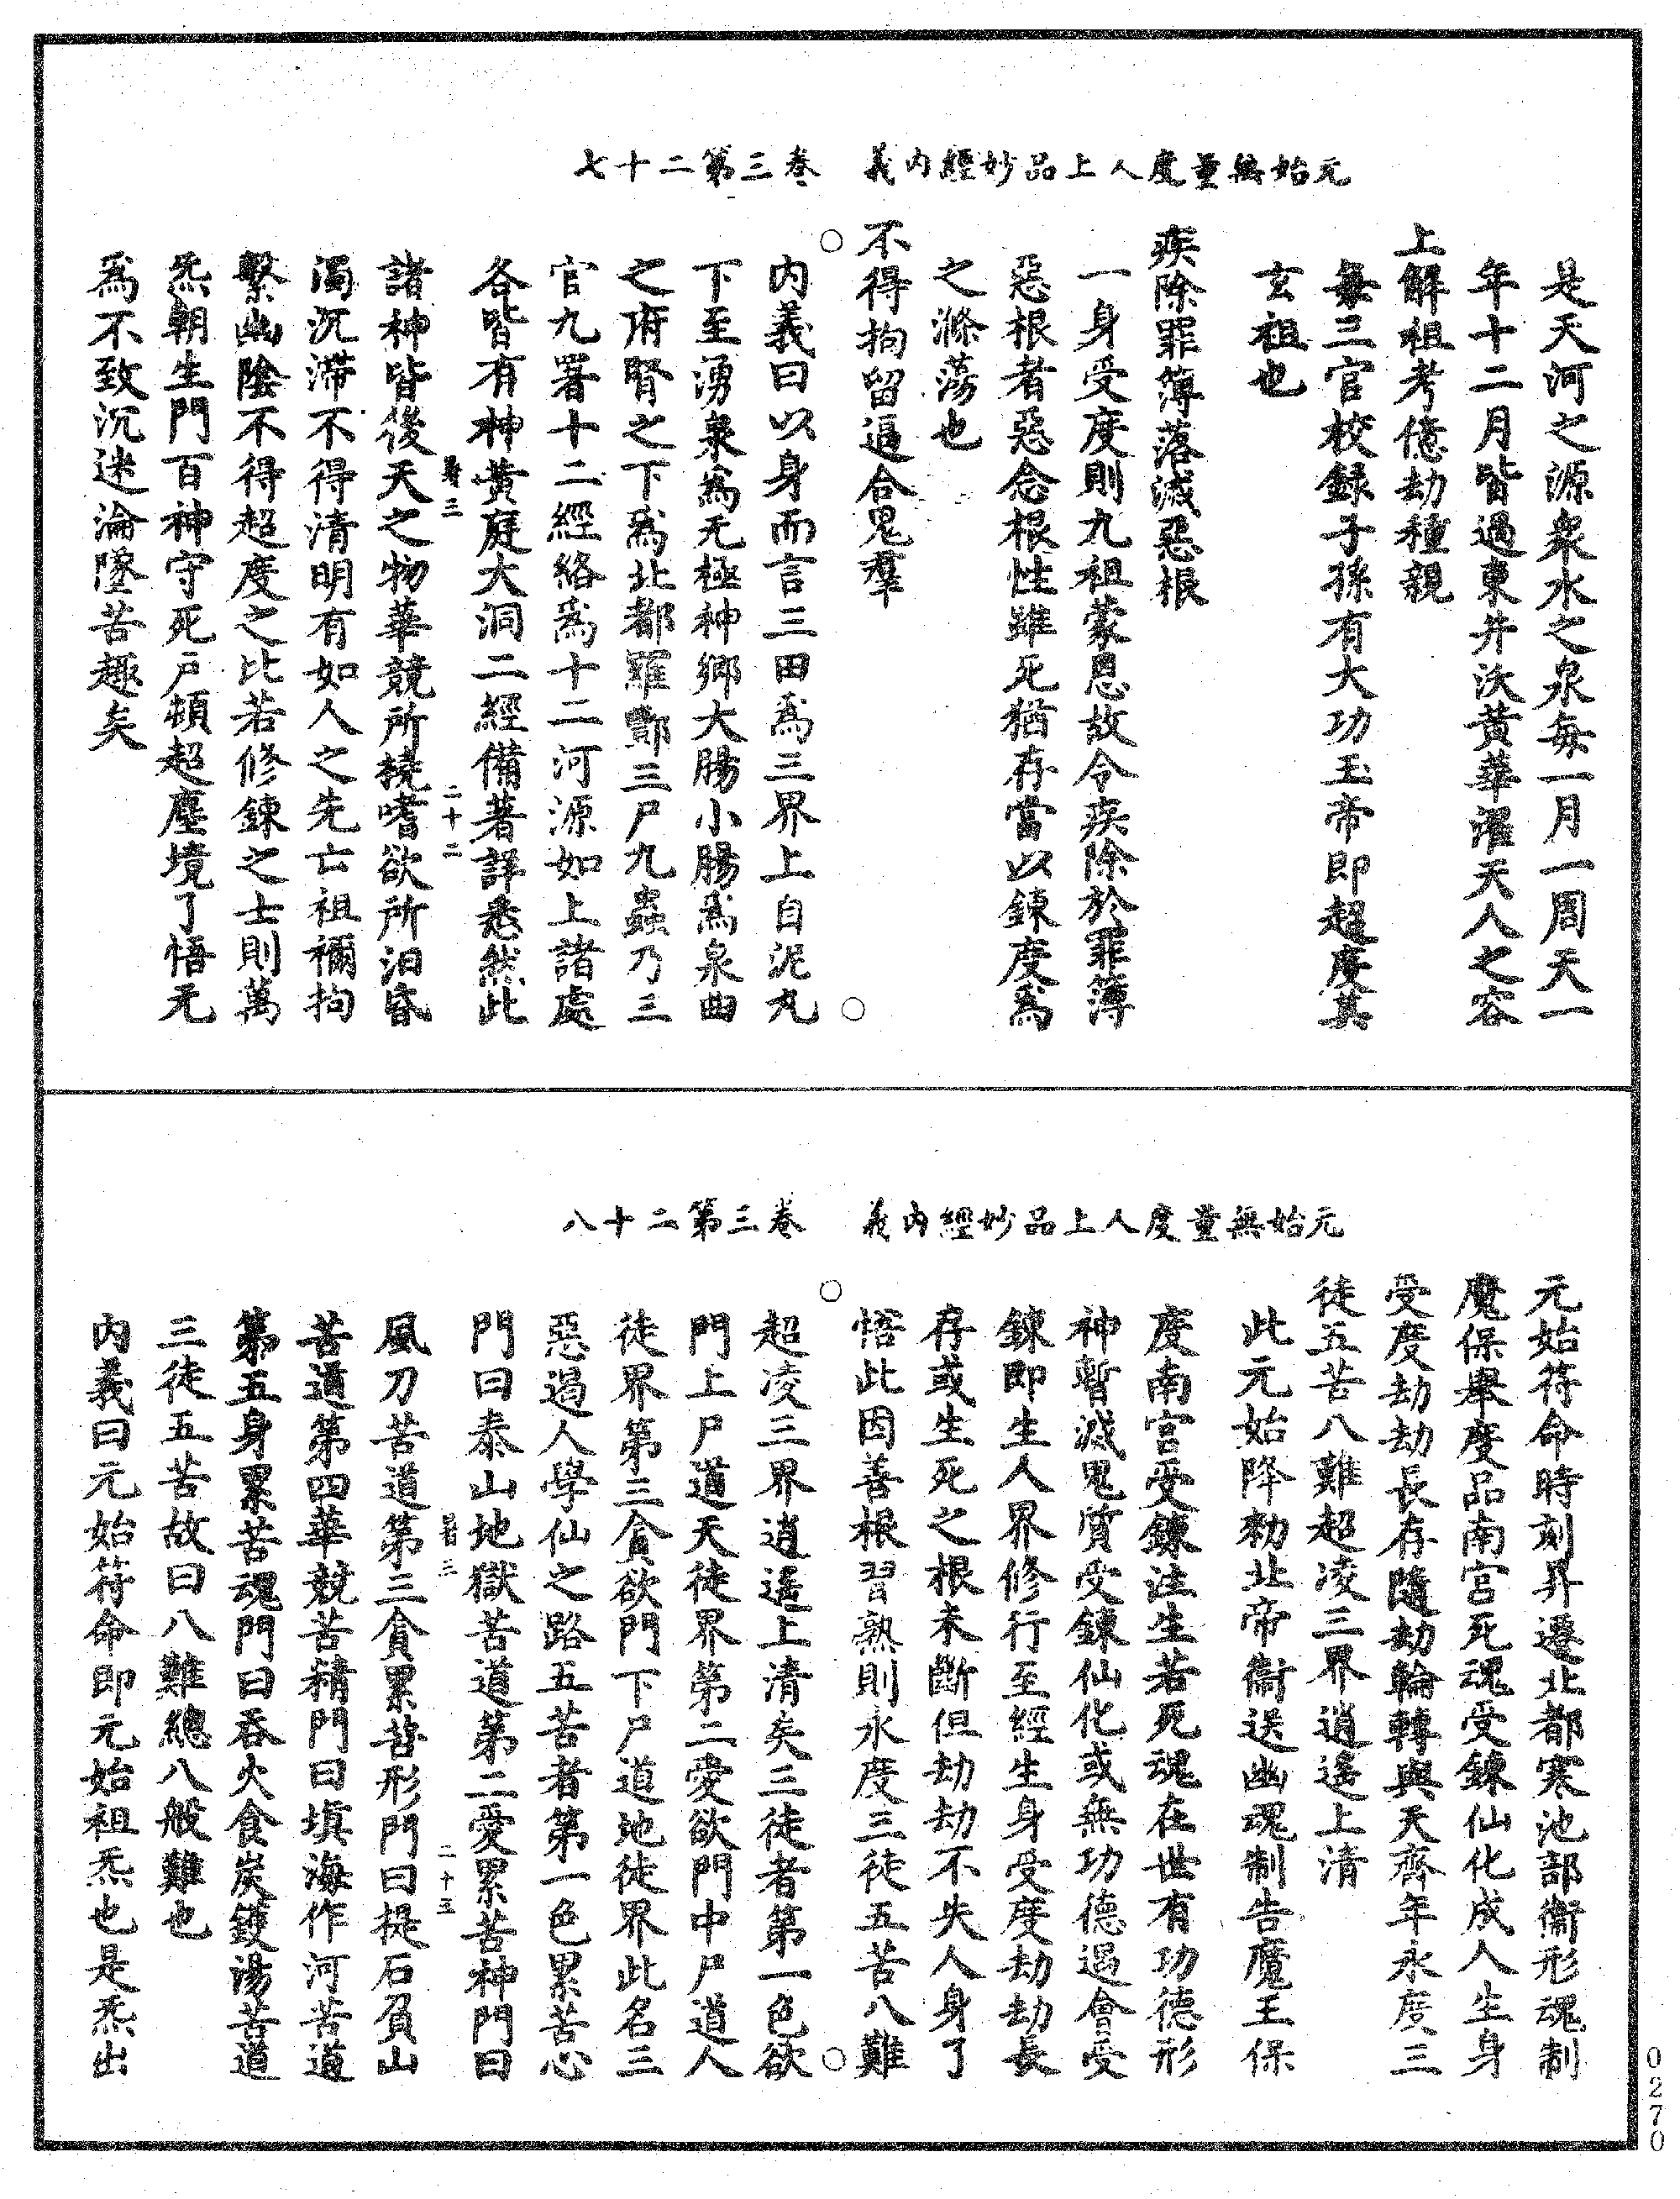 元始無量度人上品妙經內義　卷三第二十七
是天河之源衆水之泉每一月一周天一
年十二月皆過東井沃黃華濯天人之容
上解祖考億劫種親
每三官校錄子孫有大功玉帝即超度其
玄祖也
疾除罪簿落滅惡根
一身受度則九祖蒙恩故令疾除於罪簿
惡根者惡念根性雖死猶存當以鍊度爲
之滌蕩也
不得拘留逼合鬼羣
內義曰以身而言三田爲三界上自泥丸
下至湧泉爲无極神鄉大腸小腸爲泉曲
之府腎之下爲北都羅酆三尸九蟲乃三
官九署十二經絡爲十二河源如上諸處
各皆有神黃庭大洞二經備著詳悉然此
三
二十二
諸神皆後天之物華競所撓嗜欲所汩昏
濁沉滯不得清明有如人之先亡祖禰拘
繫幽陰不得超度之比若修鍊之士則萬
炁朝生門百神守死戶頓超塵境了悟元
爲不致沉迷淪墜苦趣矣
元始無量度人上品妙經內義　卷三第二十八
元始符命時刻昇遷北都寒池部衛形魂制
魔保舉度品南宮死魂受鍊仙化成人生身
受度劫劫長存隨劫輪轉與天齊年永度三
徒五苦八難超凌三界逍遙上清
此元始降勑北帝衛送幽魂制告魔王保
度南宮受鍊注生若死魂在世有功德形
神暫滅鬼質受鍊仙化或無功德遇會受
鍊即生人界修行至經生身受度劫劫長
存或生死之根未斷但劫劫不失人身了
悟此因善根習熟則永度三徒五苦八難
超凌三界逍遙上清矣三徒者第一色欲
門上尸道天徒界第二愛欲門中尸道人
徒界第三貪欲門下尸道地徒界此名三
惡遏人學仙之路五苦者第一色累苦心
門曰泰山地獄苦道第二愛累苦神門曰
三
二十三
風刀苦道第三貪累苦形門曰提石負山
苦道第四華競苦精門曰填海作河苦道
第五身累苦魂門曰吞火食炭鑊湯苦道
三徒五苦故曰八難總八般難也
內義曰元始符命即元始祖炁也是炁出
0270